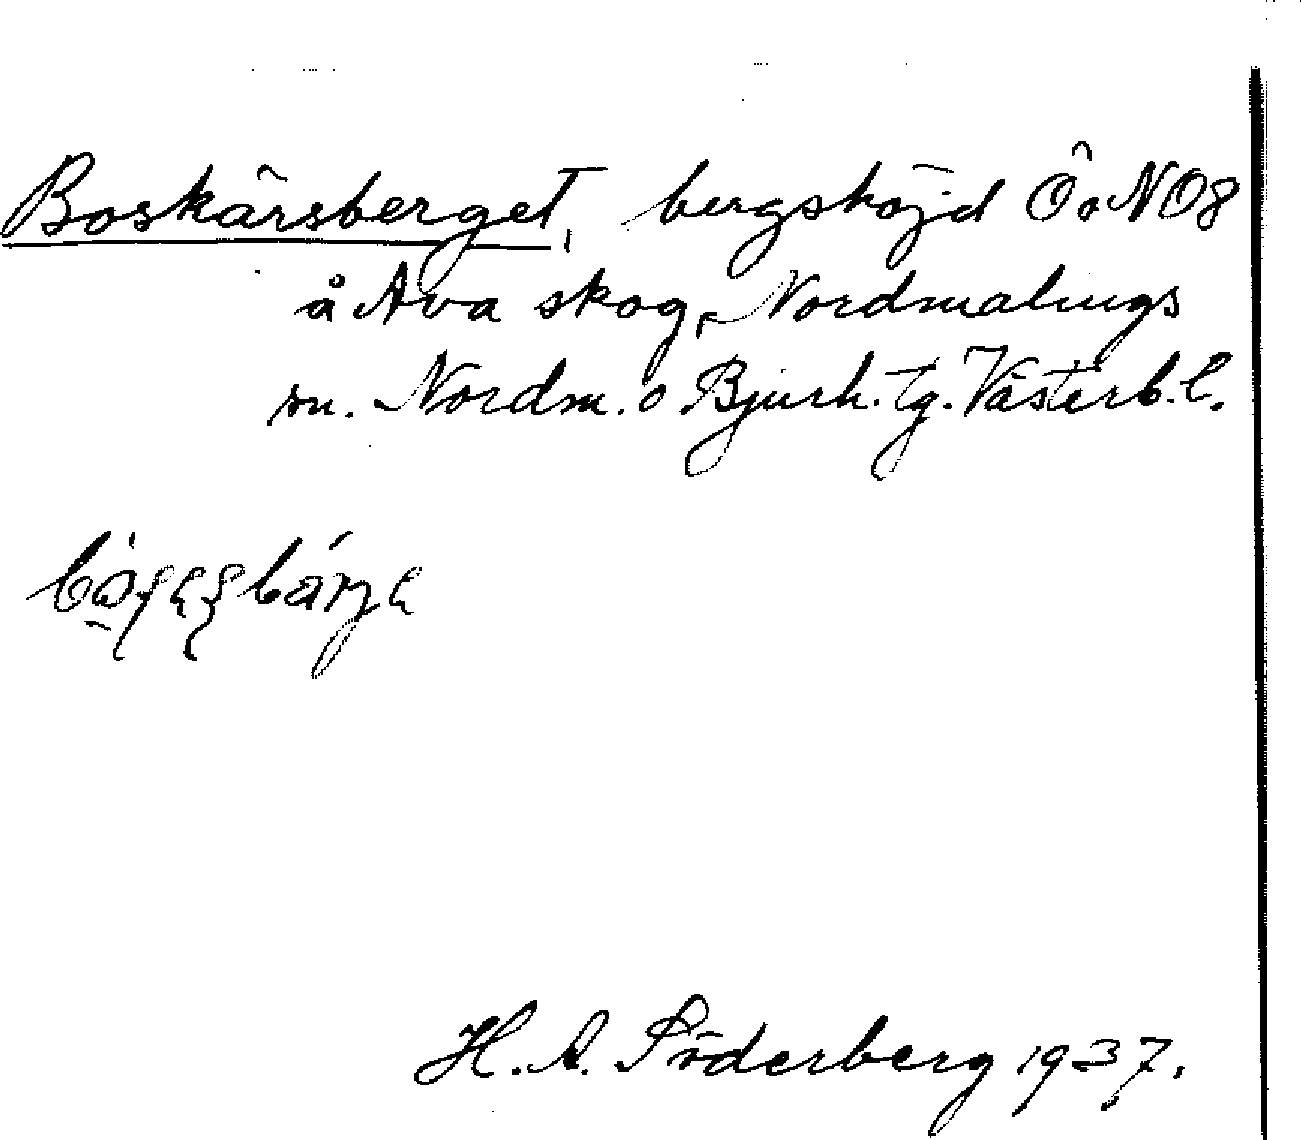 Boskärsberget, bergshöjd Ö o NO8
å Ava skog, Nordmalings
sn. Nordm. o Bjurh. tg. Västerb. l.
H. A. Söderberg 1937.